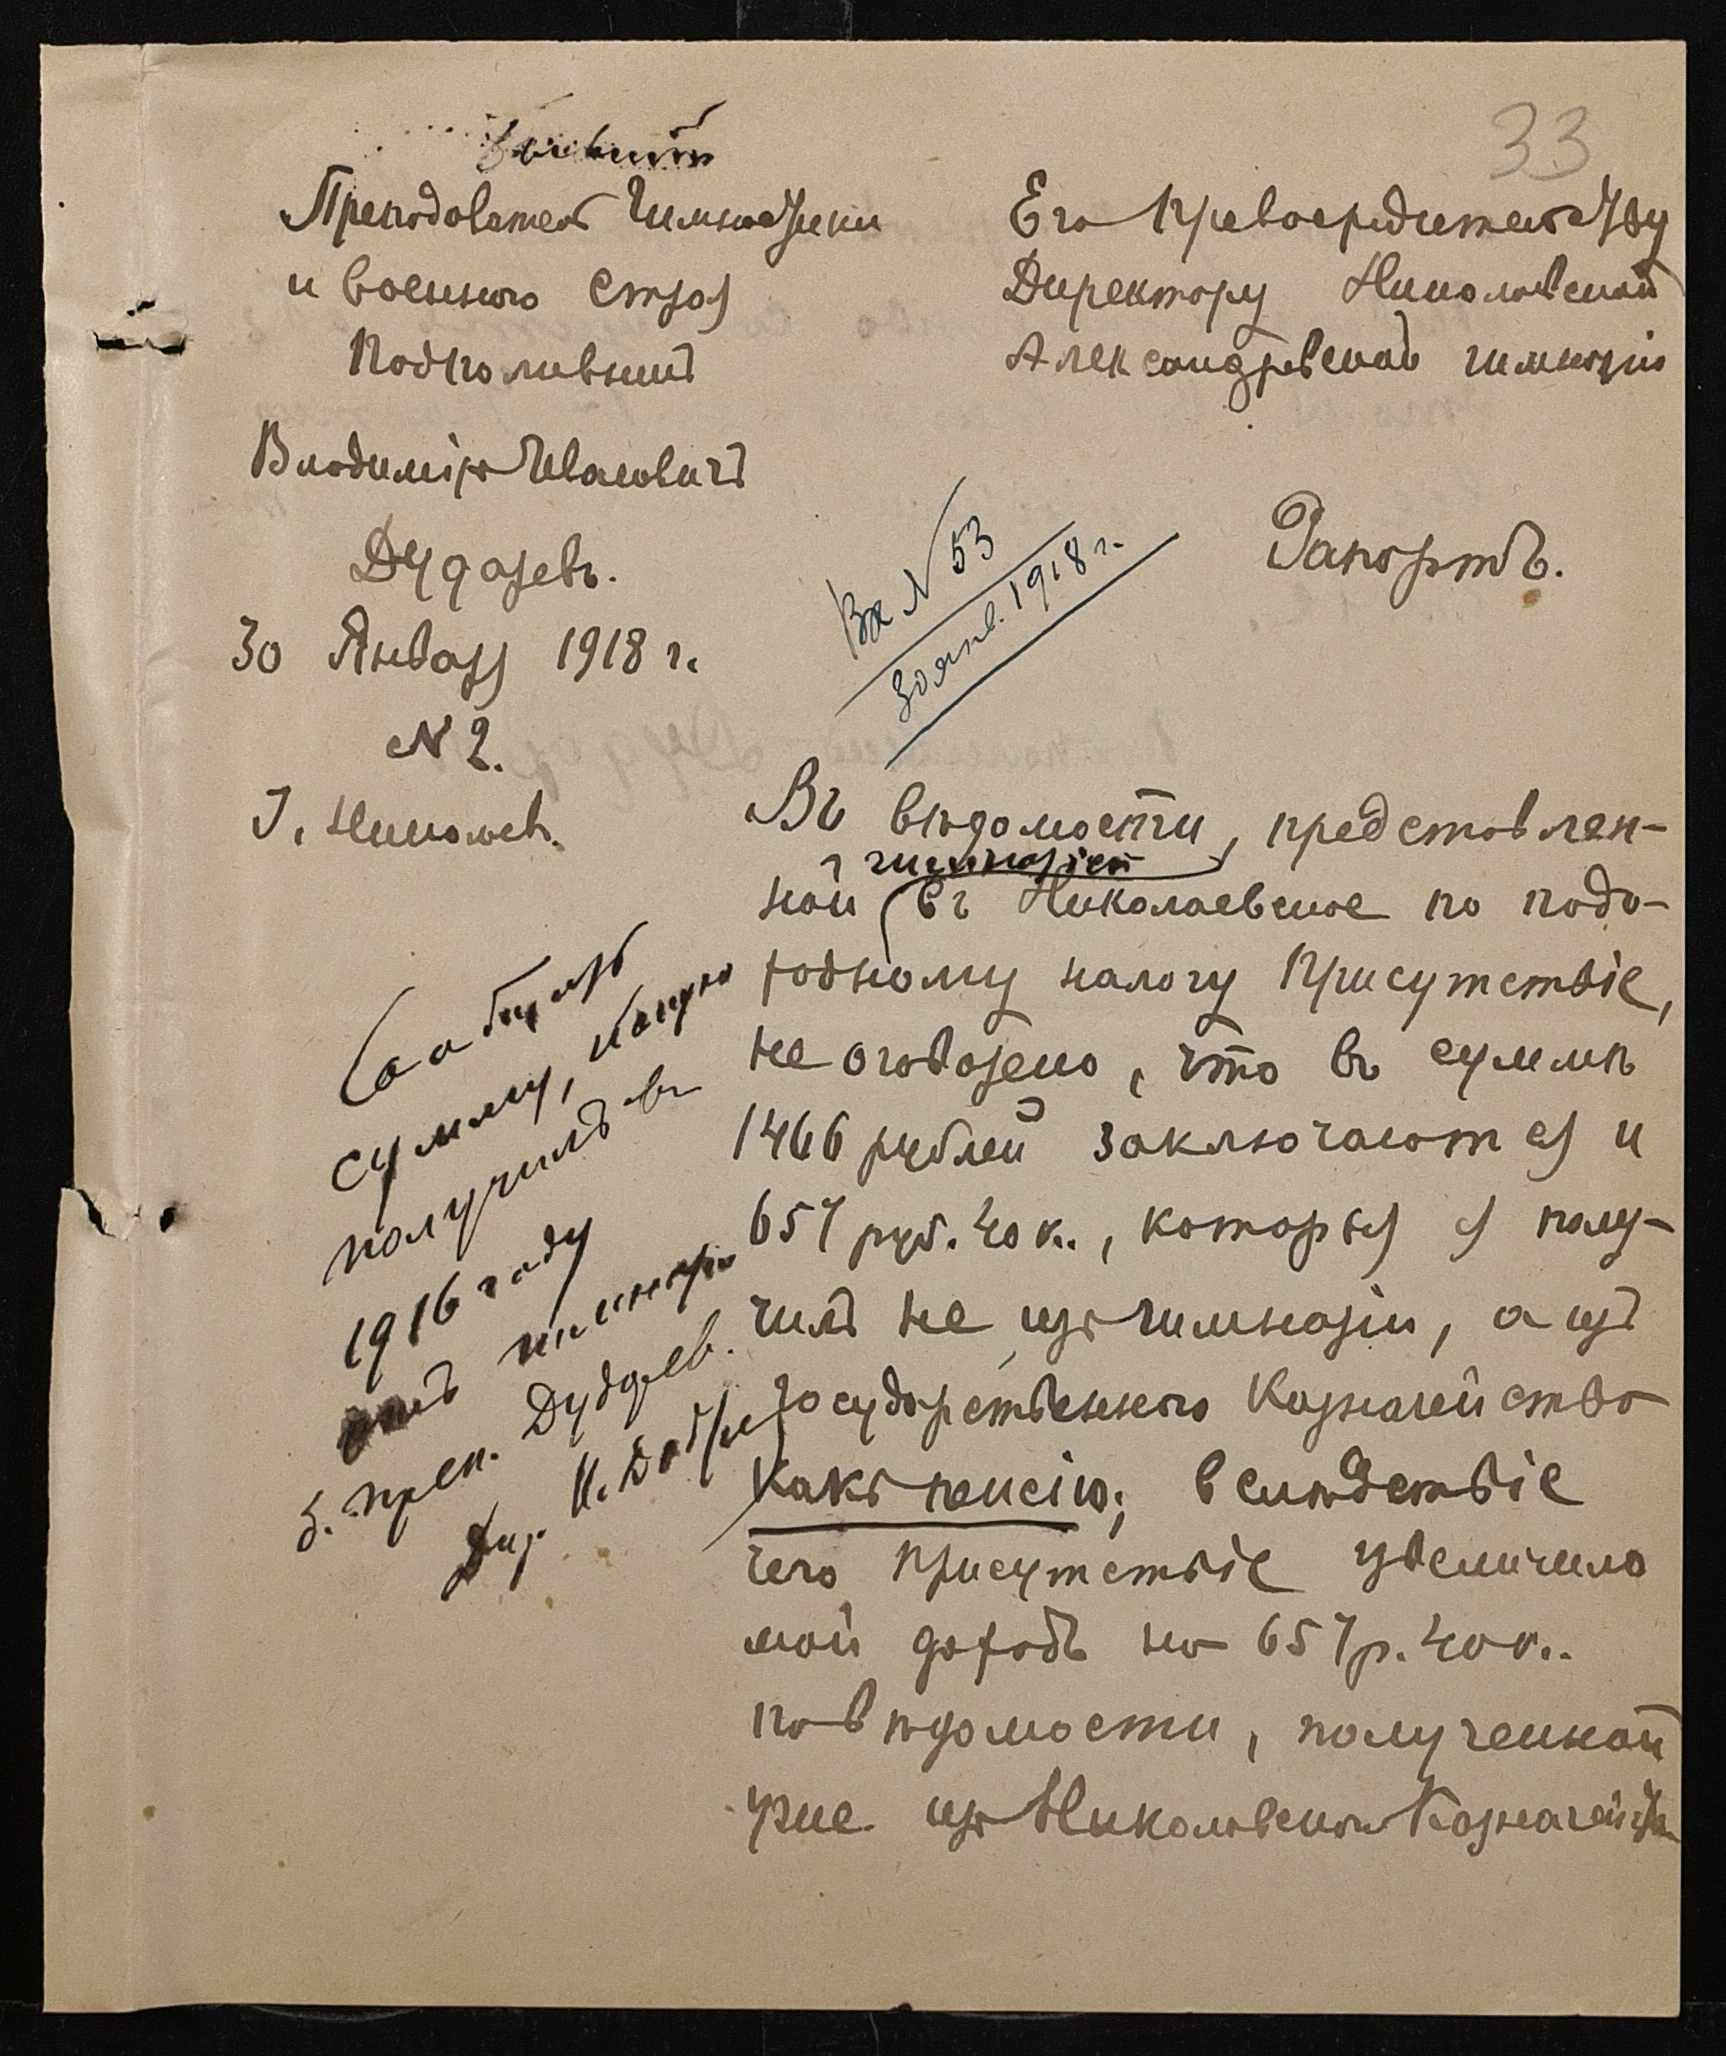 33
Бывшій
Преподаватель Гимнастики
и военного строя
Подполковникъ
Владиміръ Ивановичъ
Дударевъ.
30 Января 1918 г.
N 2.
Г. Николаевъ.
Его Превосходительству
Директору Николаевской
Александровской гимназіи
Рапортъ.
Вх N 53
30 янв. 1918 г.
Въ вѣдомости, представлен-
гимназіей
ной въ Николаевское по подо-
ходному налогу Присутствіе,
не оговорено, что въ суммѣ
1466 рублей заключаются и
657 руб. 40 к., которыя я полу-
чилъ не изъ гимназіи, а изъ
Государственного Казначейства
какъ пенсію; вслѣдствіе
чего присутствіе увеличило
мой доходъ на 657 р. 40 к..
по вѣдомости, полученной
уже изъ Николаевскаго Казначейства
Сообщить
сумму, какую
получилъ въ
1916 году
отъ гимназіи
б. преп. Дударев.
Дир. И.